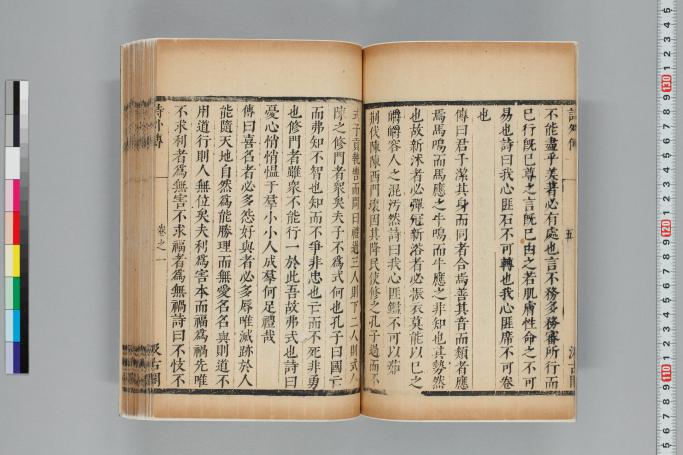 不能盡乎美著必有處也言不務多務審所行而
已行既已尊之言既已由之若肌膚性命之不可
易也詩曰我心匪石不可轉也我心匪席不可卷
也
傳曰君子潔其身而同者合焉善其音而類者應
焉馬鳴而馬應之牛鳴而牛應之非知也其勢然
也故新沐者必彈冠新浴者必振衣莫能以己之
皭皭容人之混污然詩曰我心匪鑒不可以茹
荊伐陳陳西門壞因其降民使修之孔子過而不
式子貢執轡而問曰禮過三人則下二人則式今
陳之修門者衆矣夫子不爲式何也孔子曰國亡
而弗知不智也知而不爭非忠也亡而不死非勇
也修門者雖衆不能行一於此吾故弗式也詩曰
憂心悄悄慍于羣小小人成羣何足禮哉
傳曰喜名者必多怨好與者必多辱唯滅跡於人
能隨天地自然爲能勝理而無愛名名興則道不
用道行則人無位矣夫利爲害本而福爲禍先唯
不求利者爲無害不求福者爲無禍詩曰不忮不
詩外傳
卷之一
汲古閣
五